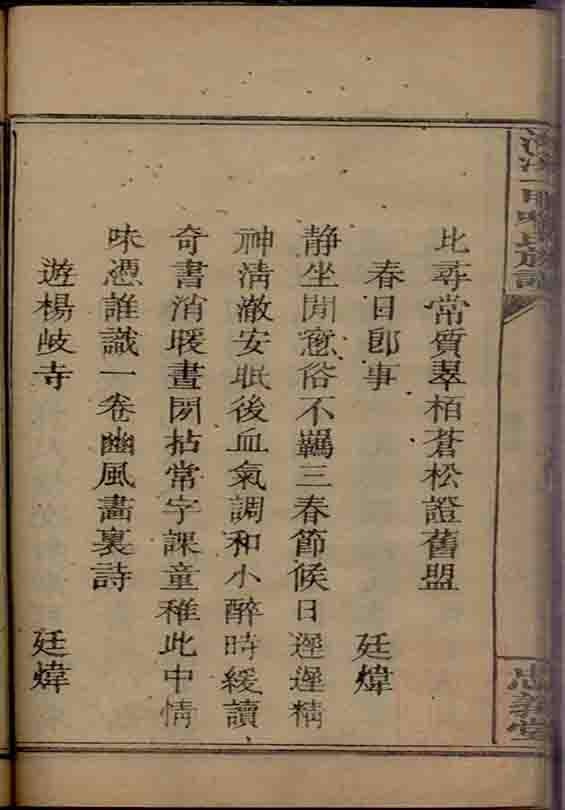 氏族譜
忠義堂
比尋常質翠栢蒼松證舊盟
春日即事 廷煒
静坐閒窓俗不羈三春節候日遲遲精
神清澈安眠後血氣調和小醉時緩讀
奇書消暖晝閒拈常字課童稚此中情
味憑誰識一卷豳風畵裏詩
遊楊岐寺 廷煒